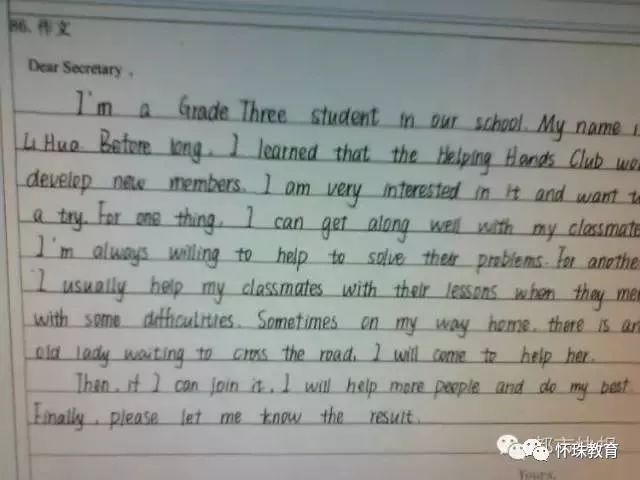 86. 作文
Dear Secretary,
I'm a Grade Three student in our school. My name
Li Hua. Before long, I learned that the Helping Hands Club
develop new members. I am very interested in it and want
a try. For one thing, I can get along well with my classmate
I'm always willing to help to solve their problems. For another
I usually help my classmates with their lessons when they
with some difficulities. Sometimes on my way home, there is an
old lady waiting to cross the road, I will come to help her.
Then, if I can join it, I will help more people and do my best.
Finally, please let me know the result.
都市快报
怀珠教育
Yours,